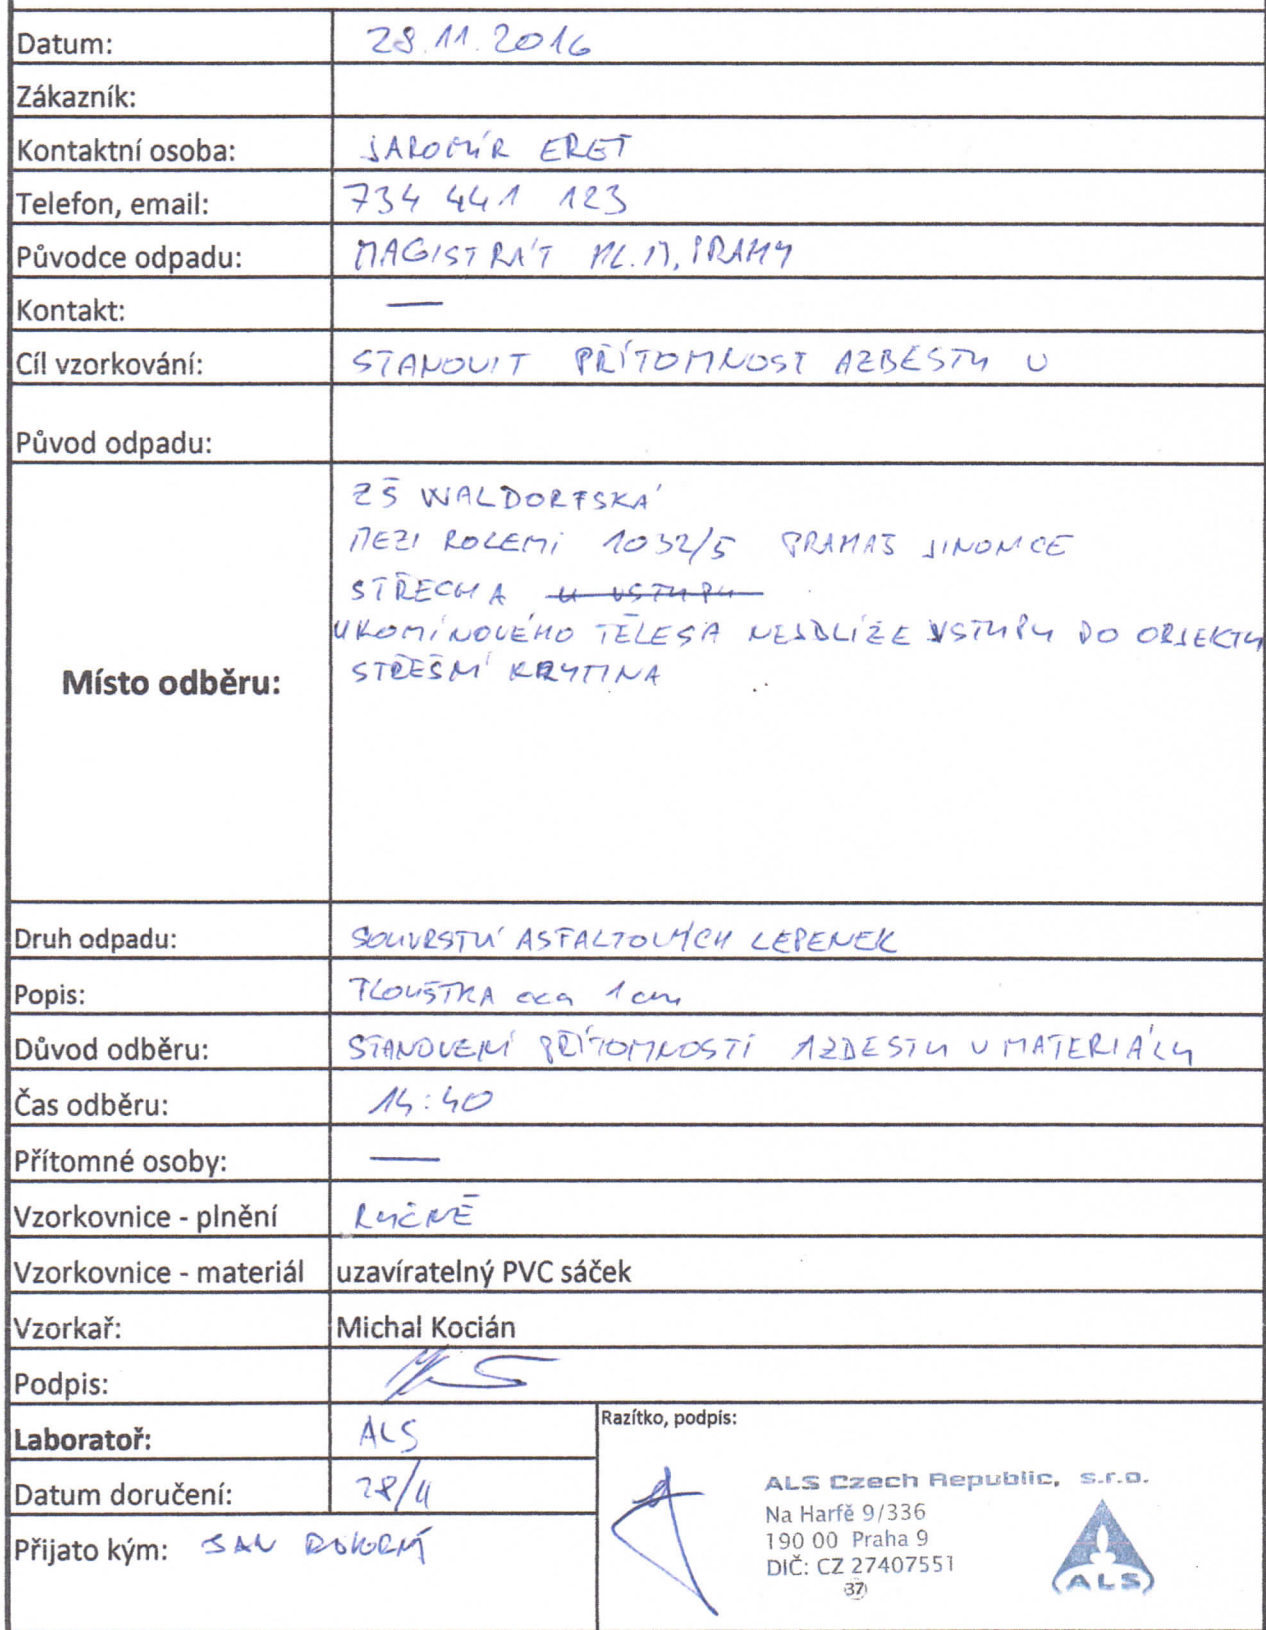 Datum: 28.11.2016
Zákazník:
Kontaktní osoba: JAROMÍR ERET
Telefon, email: 734 441 123
Původce odpadu: MAGISTRÁT HL.M. PRAHY
Kontakt: —
Cíl vzorkování: STANOVIT PŘÍTOMNOST AZBESTU V
Původ odpadu:
Místo odběru:
ZŠ WALDORFSKÁ
MEZI ROLEMI 1032/5 PRAHA5 JINONICE
STŘECHA U VSTUPU
U KOMÍNOVÉHO TĚLESA NEJBLÍŽE VSTUPU DO OBJEKTU
STŘEŠNÍ KRYTINA
Druh odpadu: SOUVRSTVÍ ASFALTOVÝCH LEPENEK
Popis: TLOUŠTKA cca 1 cm
Důvod odběru: STANOVENÍ PŘÍTOMNOSTI AZBESTU V MATERIÁLU
Čas odběru: 14:40
Přítomné osoby: —
Vzorkovnice - plnění RUČNĚ
Vzorkovnice - materiál uzavíratelný PVC sáček
Vzorkař: Michal Kocián
Podpis:
Laboratoř: ALS
Razítko, podpis:
Datum doručení: 28/11
Přijato kým: JAN POKORNÝ
ALS Czech Republic, s.r.o.
Na Harfě 9/336
190 00 Praha 9
DIČ: CZ 27407551
37
ALS